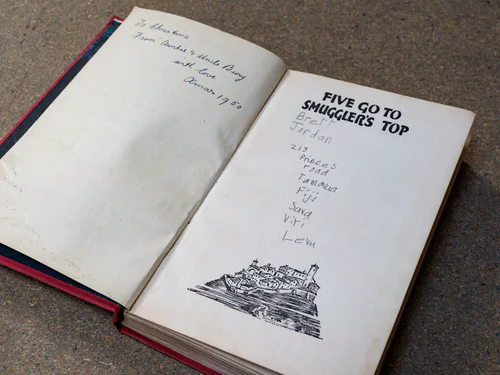 To Christina
From Auntie & Uncle Barry
with love
Xmas 1950
FIVE GO TO
SMUGGLER'S TOP
Brett
Jordan
213
Princes
road
Tamavua
Fiji
Suva
Viti
Levu